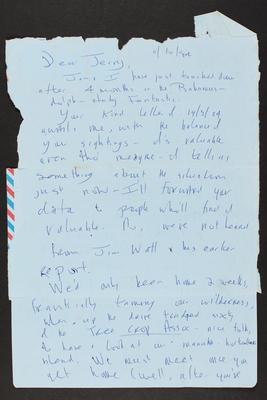 Dear Jerry,
Jim & I have just touched down
after 4 months in the Bahamas -
dolph - study. Fantastic.
Your kind letter 14/5/89
awaits me, with the balance of
your sightings - it's valuable
even tho' meagre - it tells us
something about the situation
just now - I'll forward your
data to people who'll find it
valuable. No, we've not heard
from Jim Watt & his earlier
report.
We'd only been home 2 weeks,
frantically taming our wilderness,
when up we
to the Tree Crop Assoc - nice folks,
to have a look at our
island. We must meet once you
get home (well, after you've